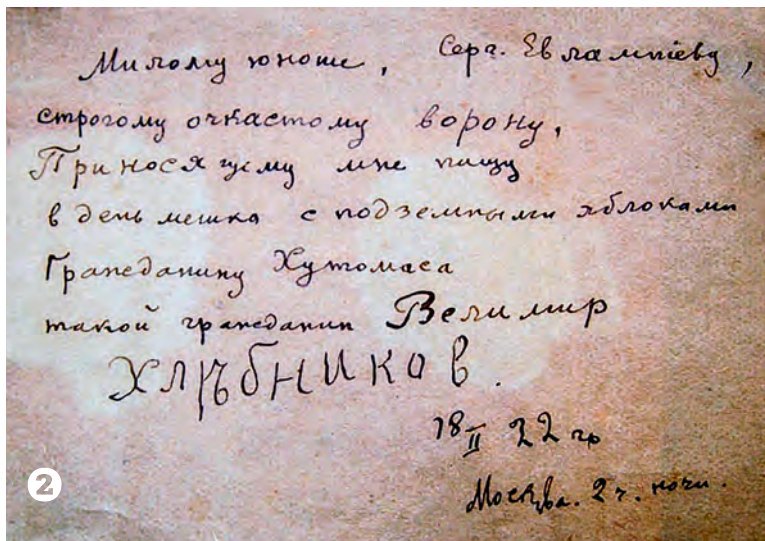 Милому юноше, Серг. Евлампіеву,
строгому очкастому ворону,
Приносящему мне пищу
в день мешка с подземными яблоками
Гражданину Хутомаса
такой гражданин Велимир
Хлѣбников.
18 II 22 г
Москва. 2 ч. ночи.
2